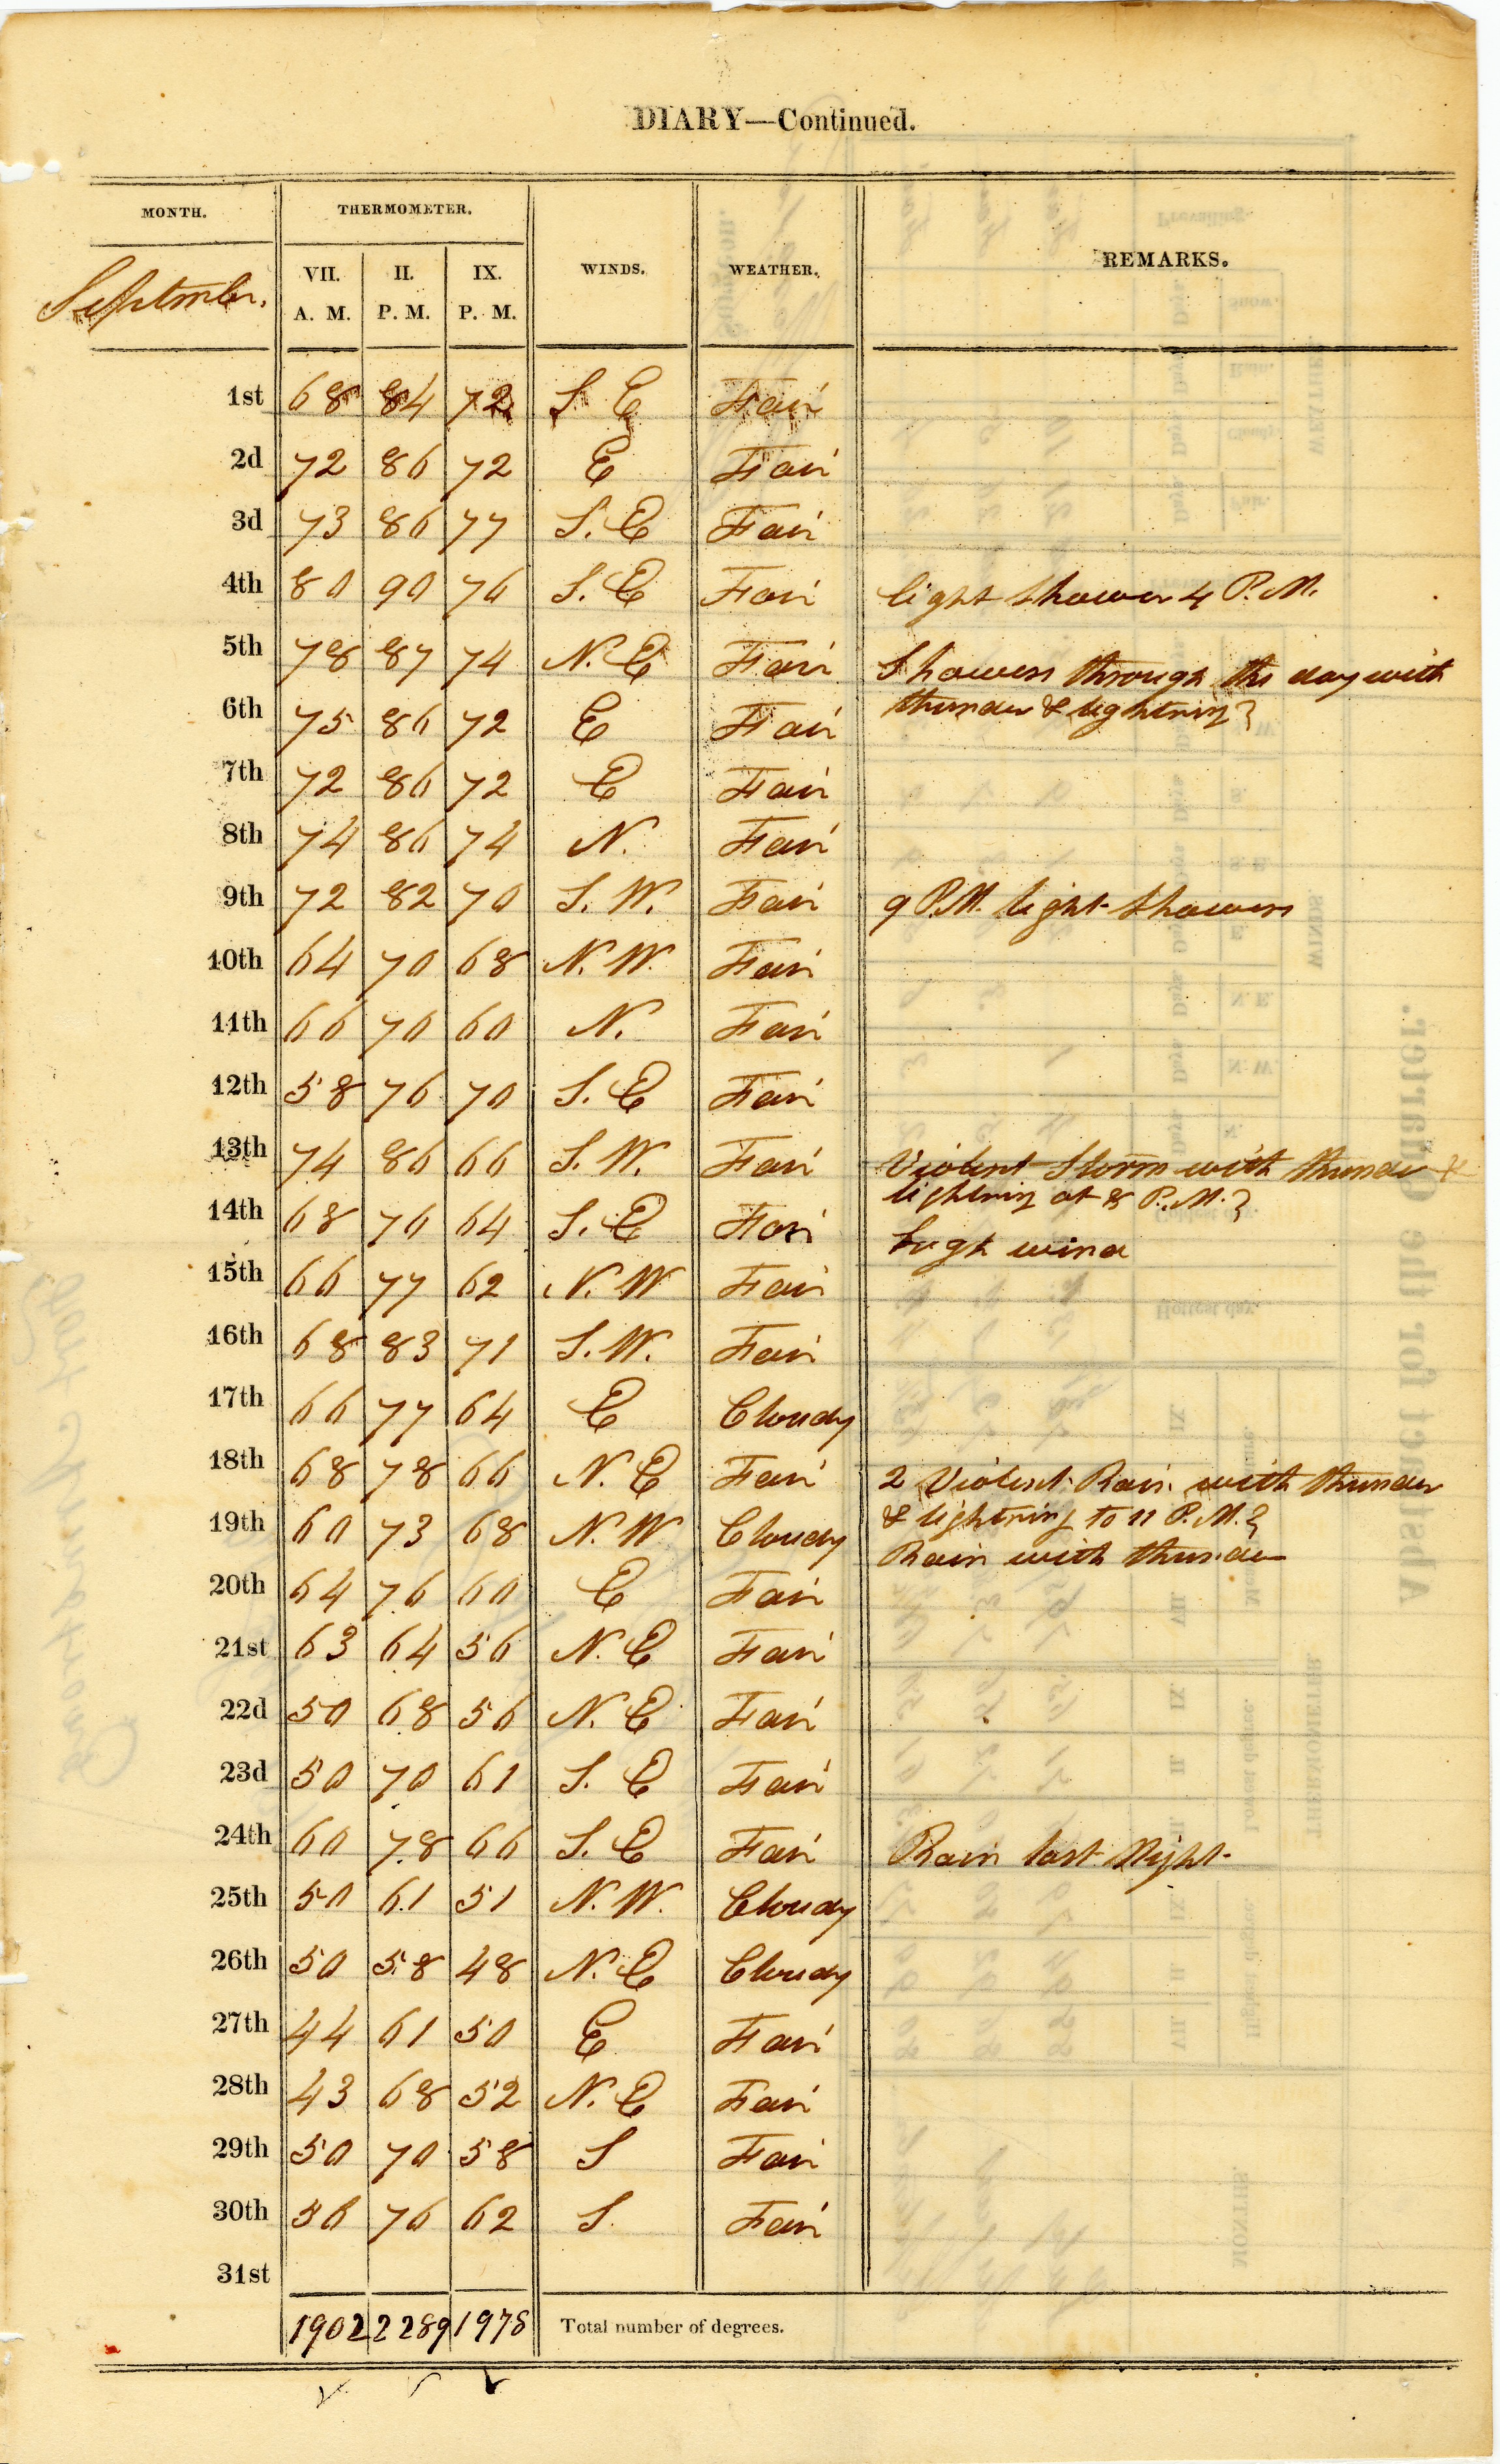 DIARY—Continued.
MONTH. THERMOMETER. WINDS. WEATHER. REMARKS.
September. VII. A. M. II. P. M. IX. P. M.
1st 68 84 72 S. E Fair
2d 72 86 72 E Fair
3d 73 86 77 S. E Fair
4th 80 90 76 S. E Fair light shower 4 P.M.
5th 78 87 74 N. E Fair Showers through the day with
thunder & lightning
6th 75 86 72 E Fair
7th 72 86 72 E Fair
8th 74 86 74 N. Fair
9th 72 82 70 S. W. Fair 9 P.M. light showers
10th 64 70 68 N. W. Fair
11th 66 70 60 N. Fair
12th 58 76 70 S. E Fair
13th 74 86 66 S. W. Fair Violent Storm with thunder &
lightning at 8 P.M.
14th 68 76 64 S. E Fair high wind
15th 66 77 62 N. W Fair
16th 68 83 71 S. W. Fair
17th 66 77 64 E Cloudy
18th 68 78 66 N. E Fair 2 Violent Rain with thunder
& lightning to 11 P.M.
19th 60 73 68 N. W Cloudy Rain with thunder
20th 64 76 60 E Fair
21st 63 64 56 N. E Fair
22d 50 68 56 N. E Fair
23d 50 70 61 S. E Fair
24th 60 78 66 S. E Fair Rain last Night
25th 50 61 51 N. W. Cloudy
26th 50 58 48 N. E Cloudy
27th 44 61 50 E Fair
28th 43 68 52 N. E Fair
29th 50 70 58 S Fair
30th 56 76 62 S. Fair
31st
1902 2289 1978 Total number of degrees.